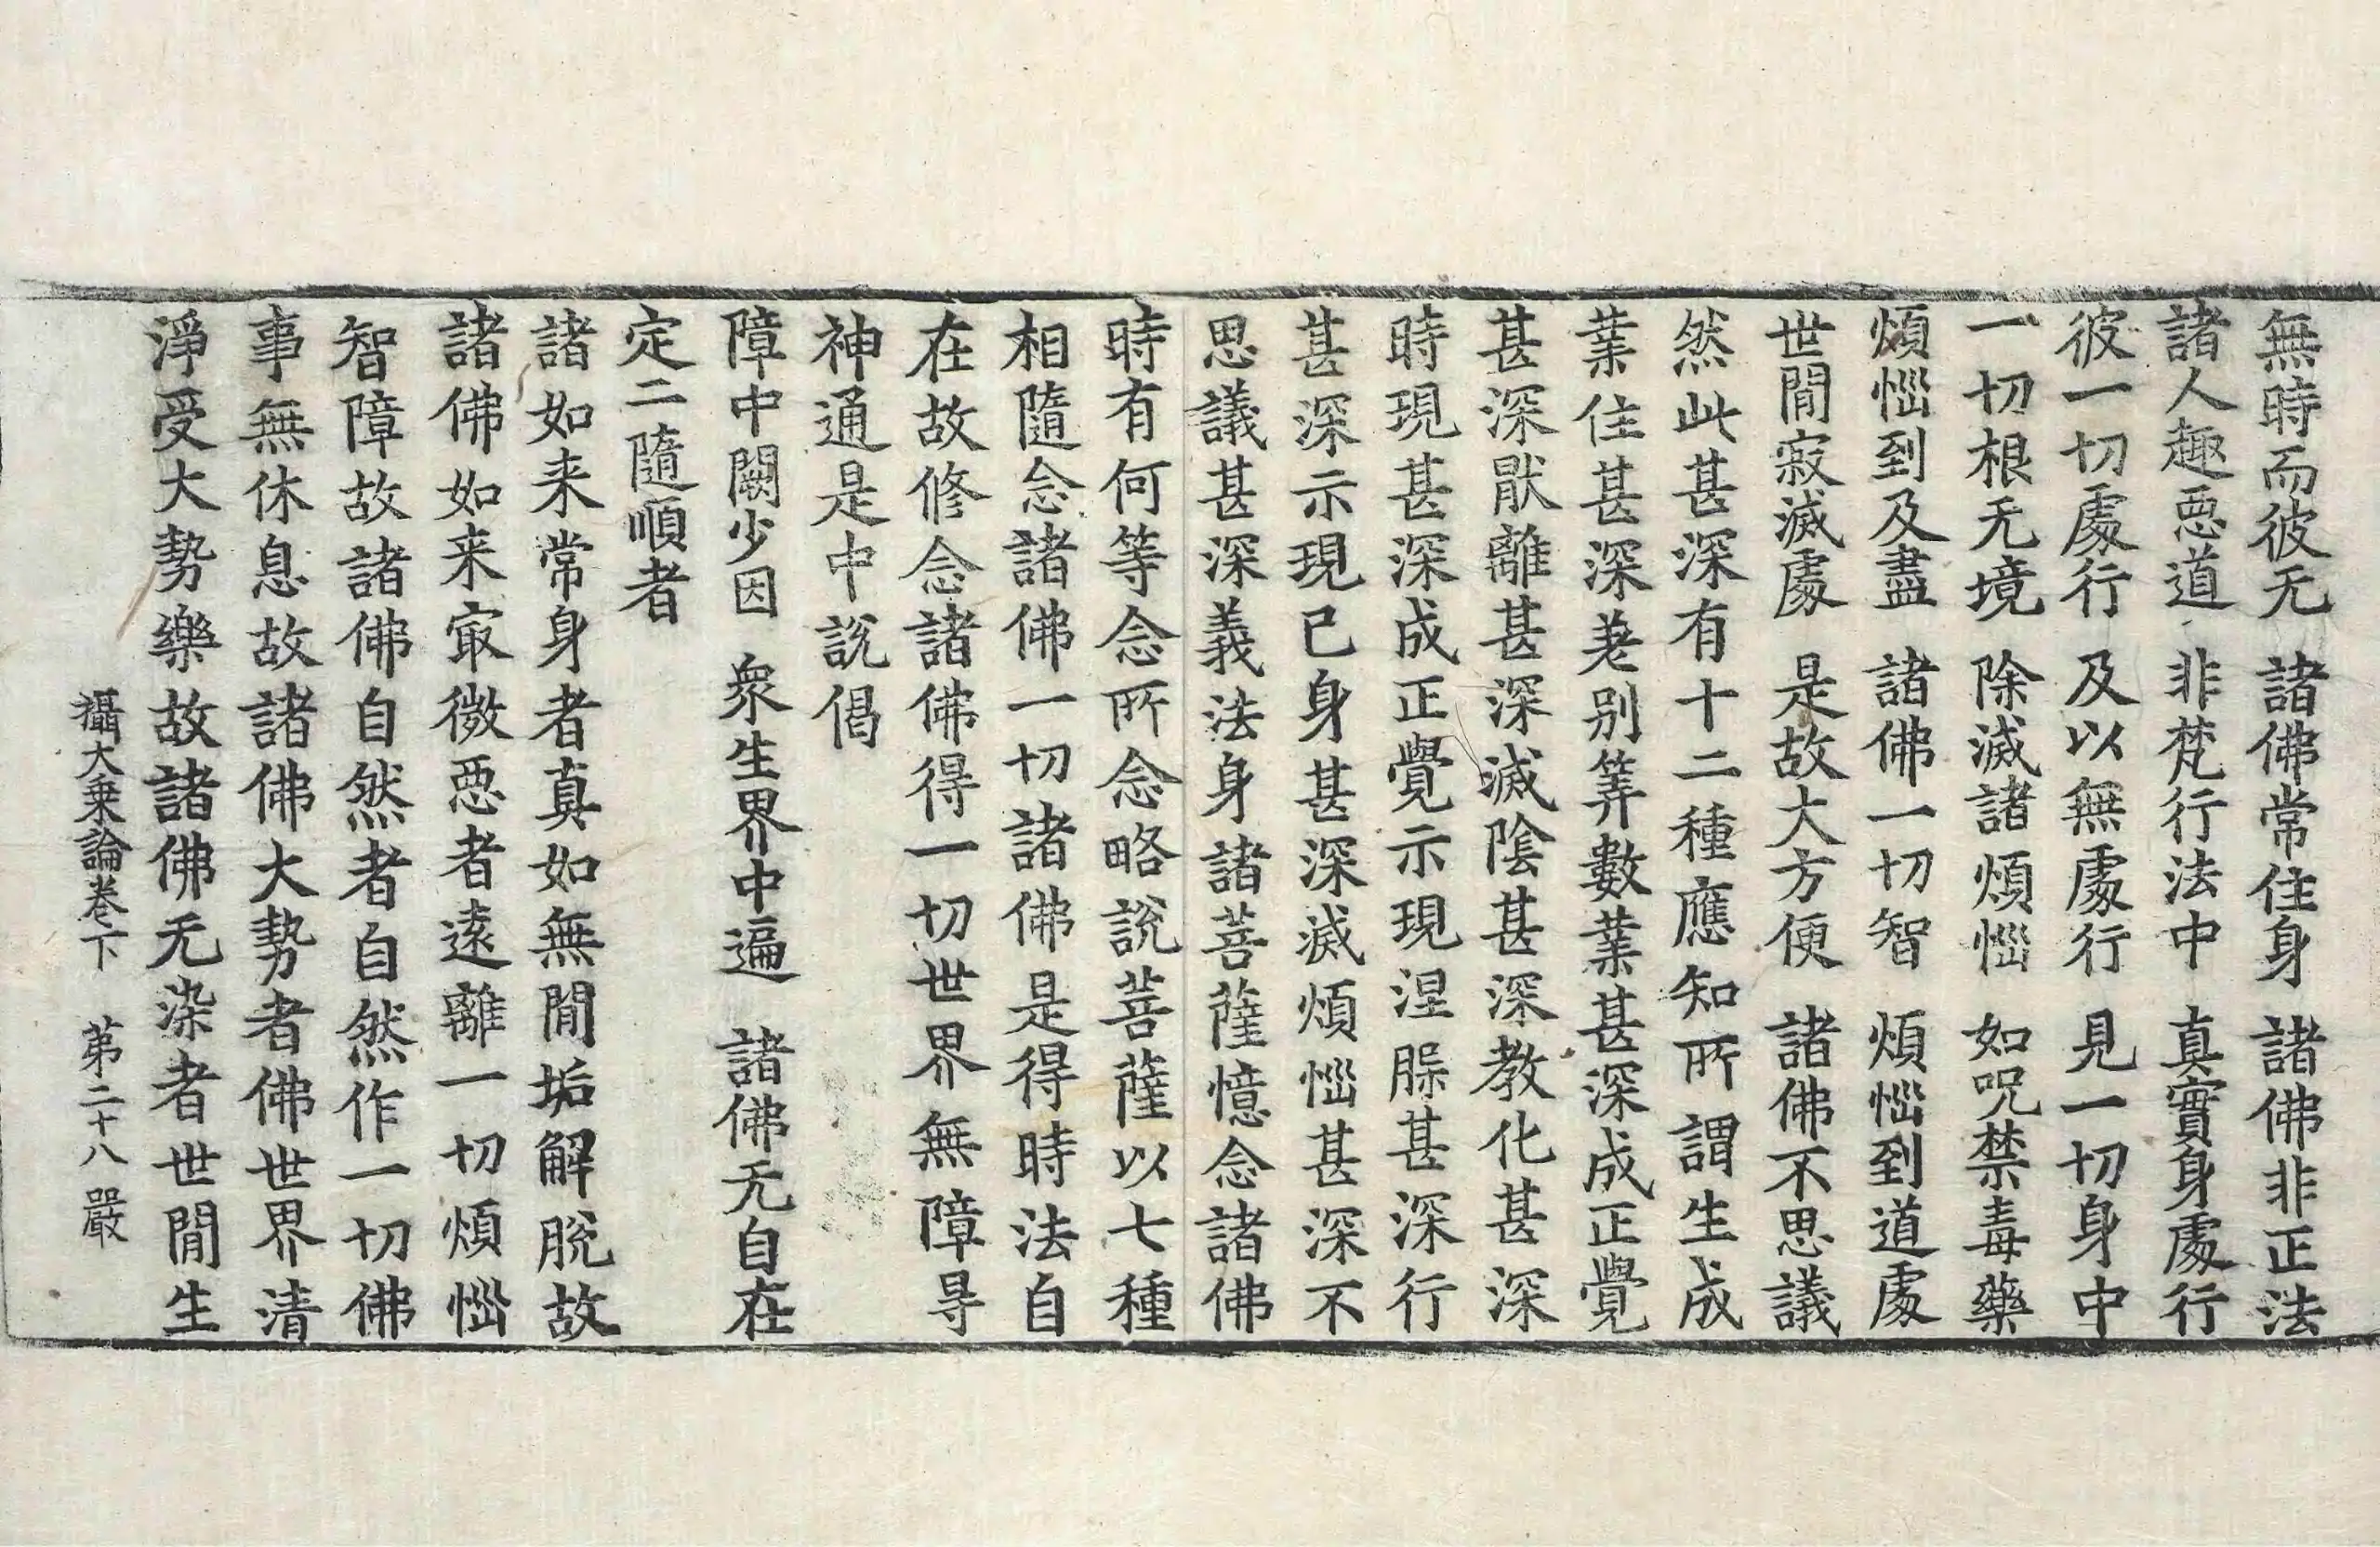 無時而彼无　諸佛常住身　諸佛非正法
諸人趣惡道　非梵行法中　真實身處行
彼一切處行　及以無處行　見一切身中
一切根无境　除滅諸煩惱　如呪禁毒藥
煩惱到及盡　諸佛一切智　煩惱到道處
世閒寂滅處　是故大方便　諸佛不思議
然此甚深有十二種應知所謂生成
業住甚深差別筭數業甚深成正覺
甚深猒離甚深滅陰甚深教化甚深
時現甚深成正覺示現涅槃甚深行
甚深示現已身甚深滅煩惱甚深不
思議甚深義法身諸菩薩憶念諸佛
時有何等念所念略說菩薩以七種
相隨念諸佛一切諸佛是得時法自
在故修念諸佛得一切世界無障㝵
神通是中說偈
障中闕少因　衆生界中遍　諸佛无自在
定二隨順者
諸如来常身者真如無閒垢解脫故
諸佛如来㝡微惡者遠離一切煩惱
智障故諸佛自然者自然作一切佛
事無休息故諸佛大勢者佛世界清
淨受大勢樂故諸佛无染者世閒生
攝大乗論卷下　苐二十八　嚴